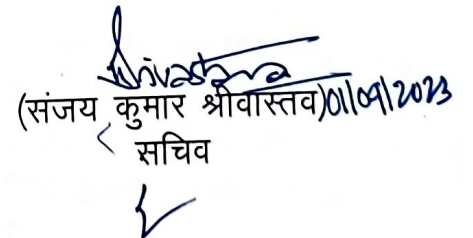 Srivastava
(संजय कुमार श्रीवास्तव)01/09/2023
सचिव